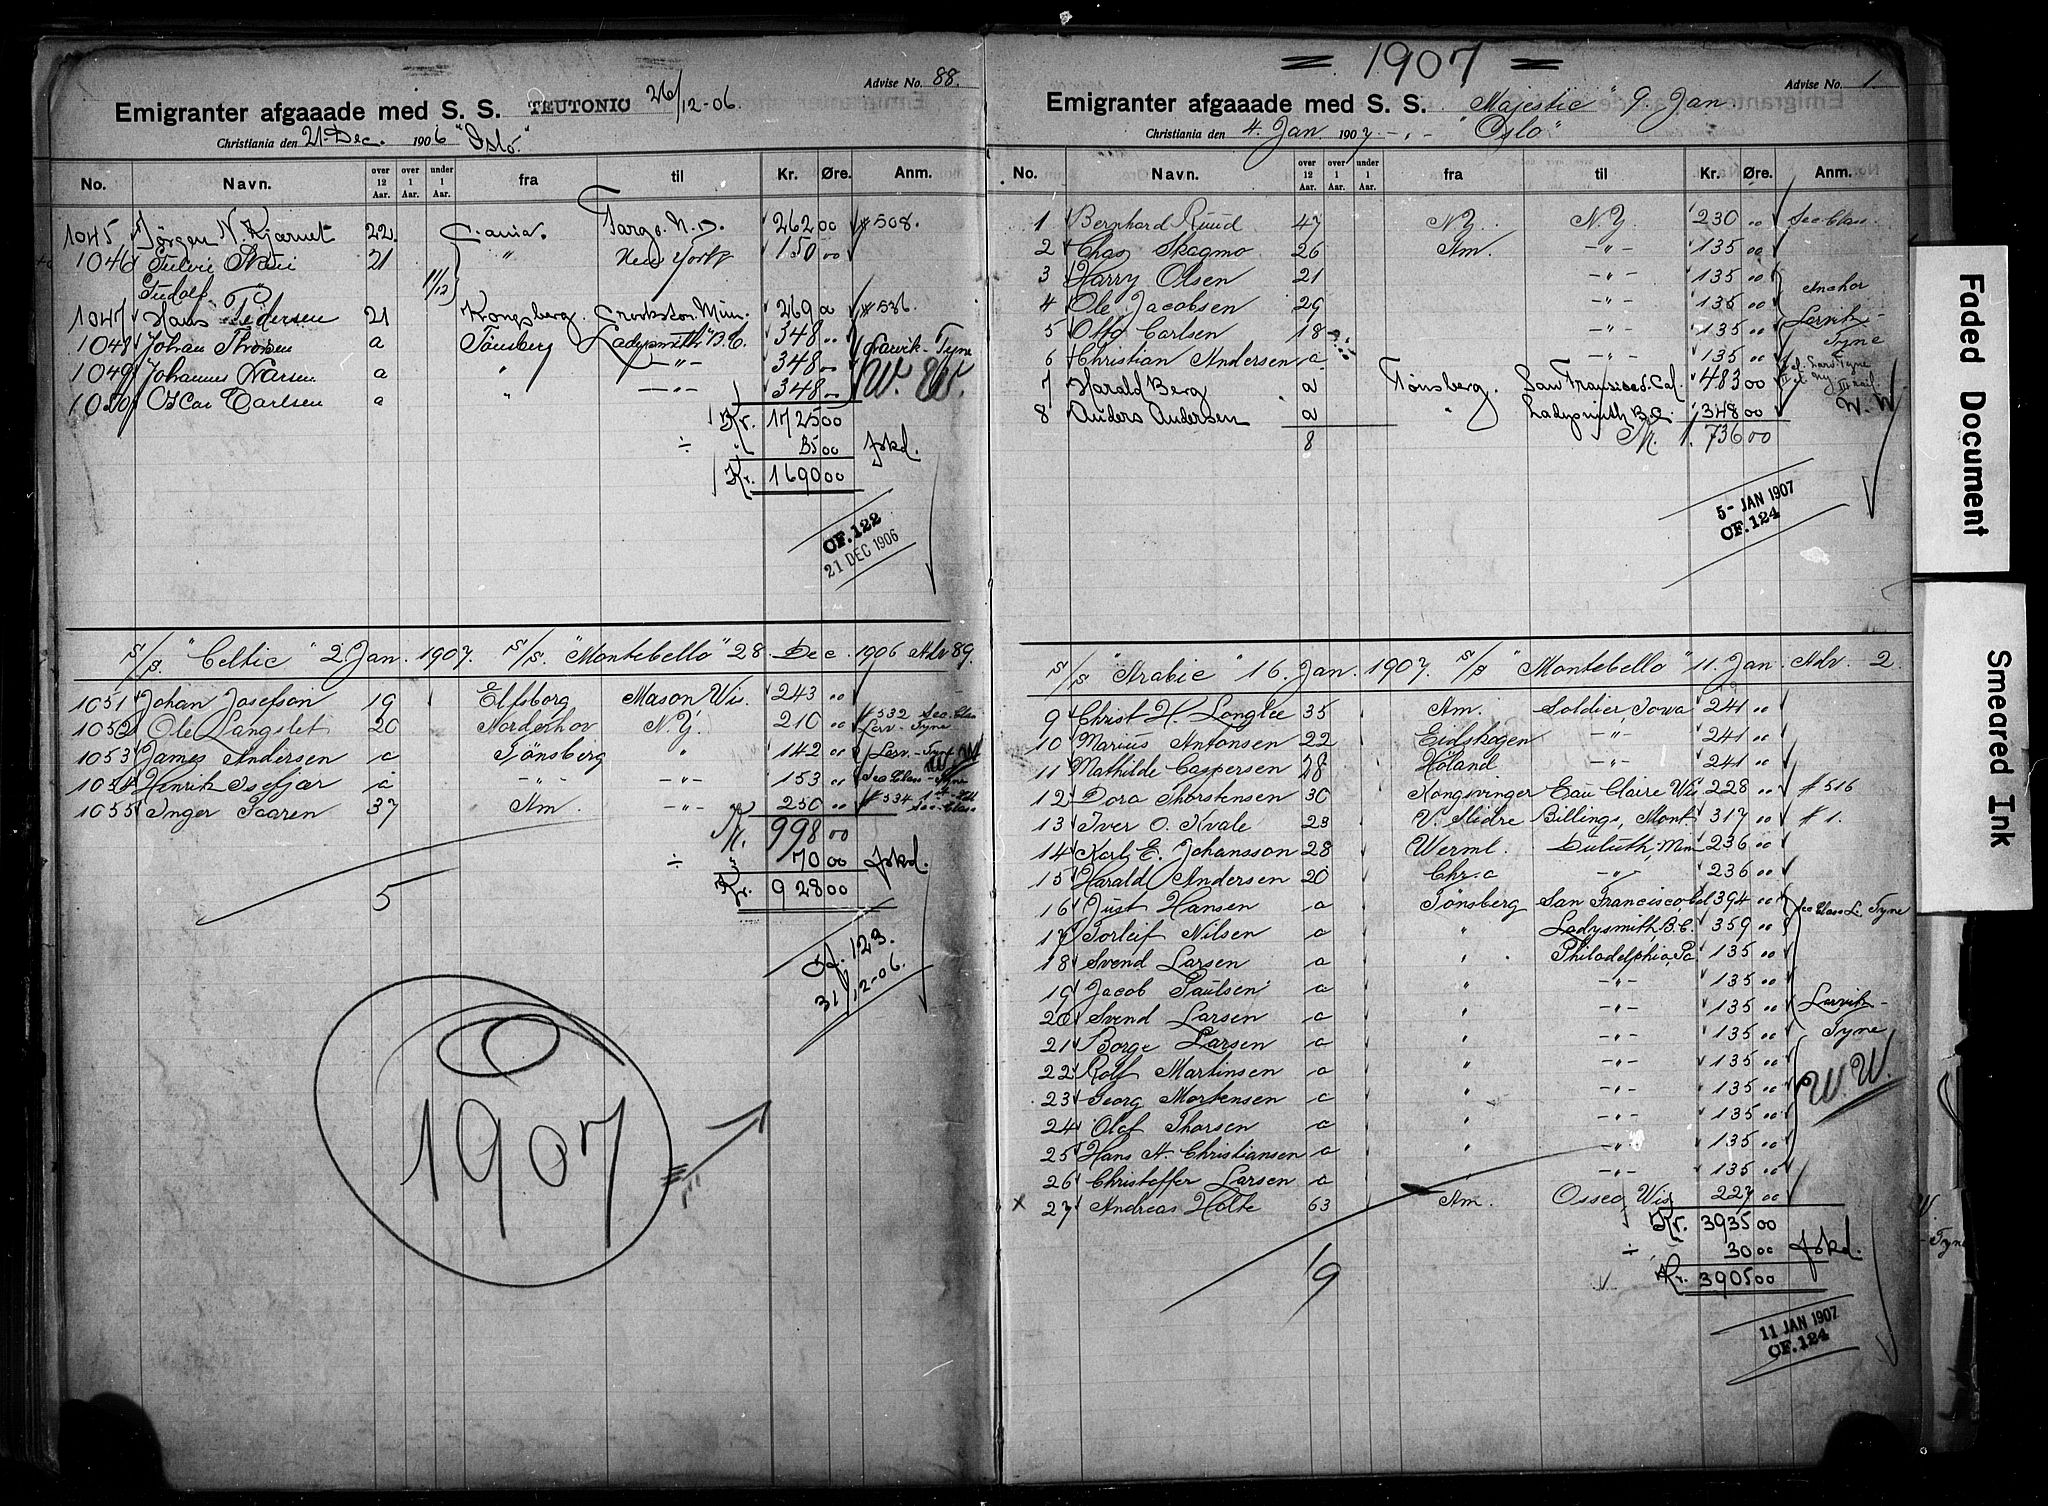 Advise No. 88.
Emigranter afgaaade med S. S. TEUTONIC 26/12-06.
Christiania den 21 Dec. 1906 "Oslo."
No. Navn. over 12 Aar. over 1 Aar. under 1 Aar. fra til Kr. Øre. Anm.
1045 Jørgen N. Kjærnet 22 Fargo N.D. 262 00 # 508.
1046 21 " New York 150 00
11/12
1047 Hans Pedersen 21 Kongsberg Crookston Min. 269 00 # 536.
1048 Johan Thorsen a Tönsberg Ladysmith B.C. 348 "
1049 Johannes Larsen a " —"— 348 00 Larvik - Tyne
1050 Oscar Carlsen a " —"— 348 00 W. W.
Kr. 1725 00
÷ 35 00 fskd.
Kr. 1690 00
OF. 122
21 DEC 1906
S/S. "Celtic" 2 Jan. 1907. S/S. "Montebello" 28 Dec 1906 Adv 89.
1051 Johan Josefson 19 Elfsborg Mason Wis. 243 00
1052 Ole Langslet 20 Norderhov N.Y. 210 00 # 532 Sec. Class Larv. - Tyne
1053 James Andersen a Tönsberg " 142 00 Larv. - Tyne W.W
1054 Henrik Isefjær a -"- -"- 153 00 Sec Class - Tyne
1055 Inger Saaren 37 Am. -"- 250 00 # 534 Sec. Class
Kr. 998 00
÷ 70 00 fskd.
Kr. 928 00
5
Of. 123.
31/12-06.
1907
= 1907 =
Advise No. 1.
Emigranter afgaaade med S. S. "Majestic" 9. Jan
Christiania den 4. Jan. 1907 -"- "Oslo"
No. Navn. over 12 Aar. over 1 Aar. under 1 Aar. fra til Kr. Øre. Anm.
1 Bernhard Ruud 47 N.Y. N.Y. 230 00 Sec Class
2 Chas Skagmo 26 Am. -"- 135 00
3 Harry Olsen 21 -"- 135 00
4 Ole Jacobsen 29 -"- 135 00 Anchor
5 Otto Carlsen 18 -"- 135 00 Larvik-
6 Christian Andersen a -"- 135 00 Tyne
7 Harald Berg a Tønsberg. San Fransisco Cal. 483 00
8 Anders Andersen a " Ladysmith B.C. 348 00 W. W
8 Kr. 1.736 00
5- JAN 1907
OF. 124
S/S "Arabic" 16. Jan. 1907. S/S "Montebello" 11. Jan. Adv. 2.
9 Christ H. Longlee 35 Am. Soldier, Iowa 241 00
10 Marius Antonsen 22 Eidskogen -"- 241 00
11 Mathilde Caspersen 28 Høland -"- 241 00
12 Dora Thorstensen 30 Kongsvinger Eau Claire Wis 228 00 # 516
13 Iver O. Kvale 23 V. Slidre Billings, Mont 317 00 # 1.
14 Karl E. Johansson 28 Werml. Duluth, Min 236 00
15 Harald Andersen 20 Chr.a -"- 236 00
16 Just Hansen a Tønsberg San Francisco Cal 394 00 Sec Class L. Tyne
17 Torleif Nilsen a " Ladysmith, B.C. 359 00
18 Svend Larsen a " Philadelphia, Pa 135 00
19 Jacob Paulsen a " -"- 135 00
20 Svend Larsen a " -"- 135 00 Larvik-
21 Borge Larsen a " -"- 135 00 Tyne
22 Rolf Martinsen a " -"- 135 00
23 Georg Mortensen a " -"- 135 00 W.W.
24 Olaf Thorsen a " -"- 135 00
25 Hans A. Christiansen a " -"- 135 00
26 Christoffer Larsen a -"- 135 00
x 27 Andreas Holte 63 Am. Osseo, Wis 227 00
Kr. 3935 00
÷ 30 00 fskd.
Kr. 3905 00
19
11 JAN 1907
OF. 124
Faded Document
Smeared Ink
W.
- Tyne